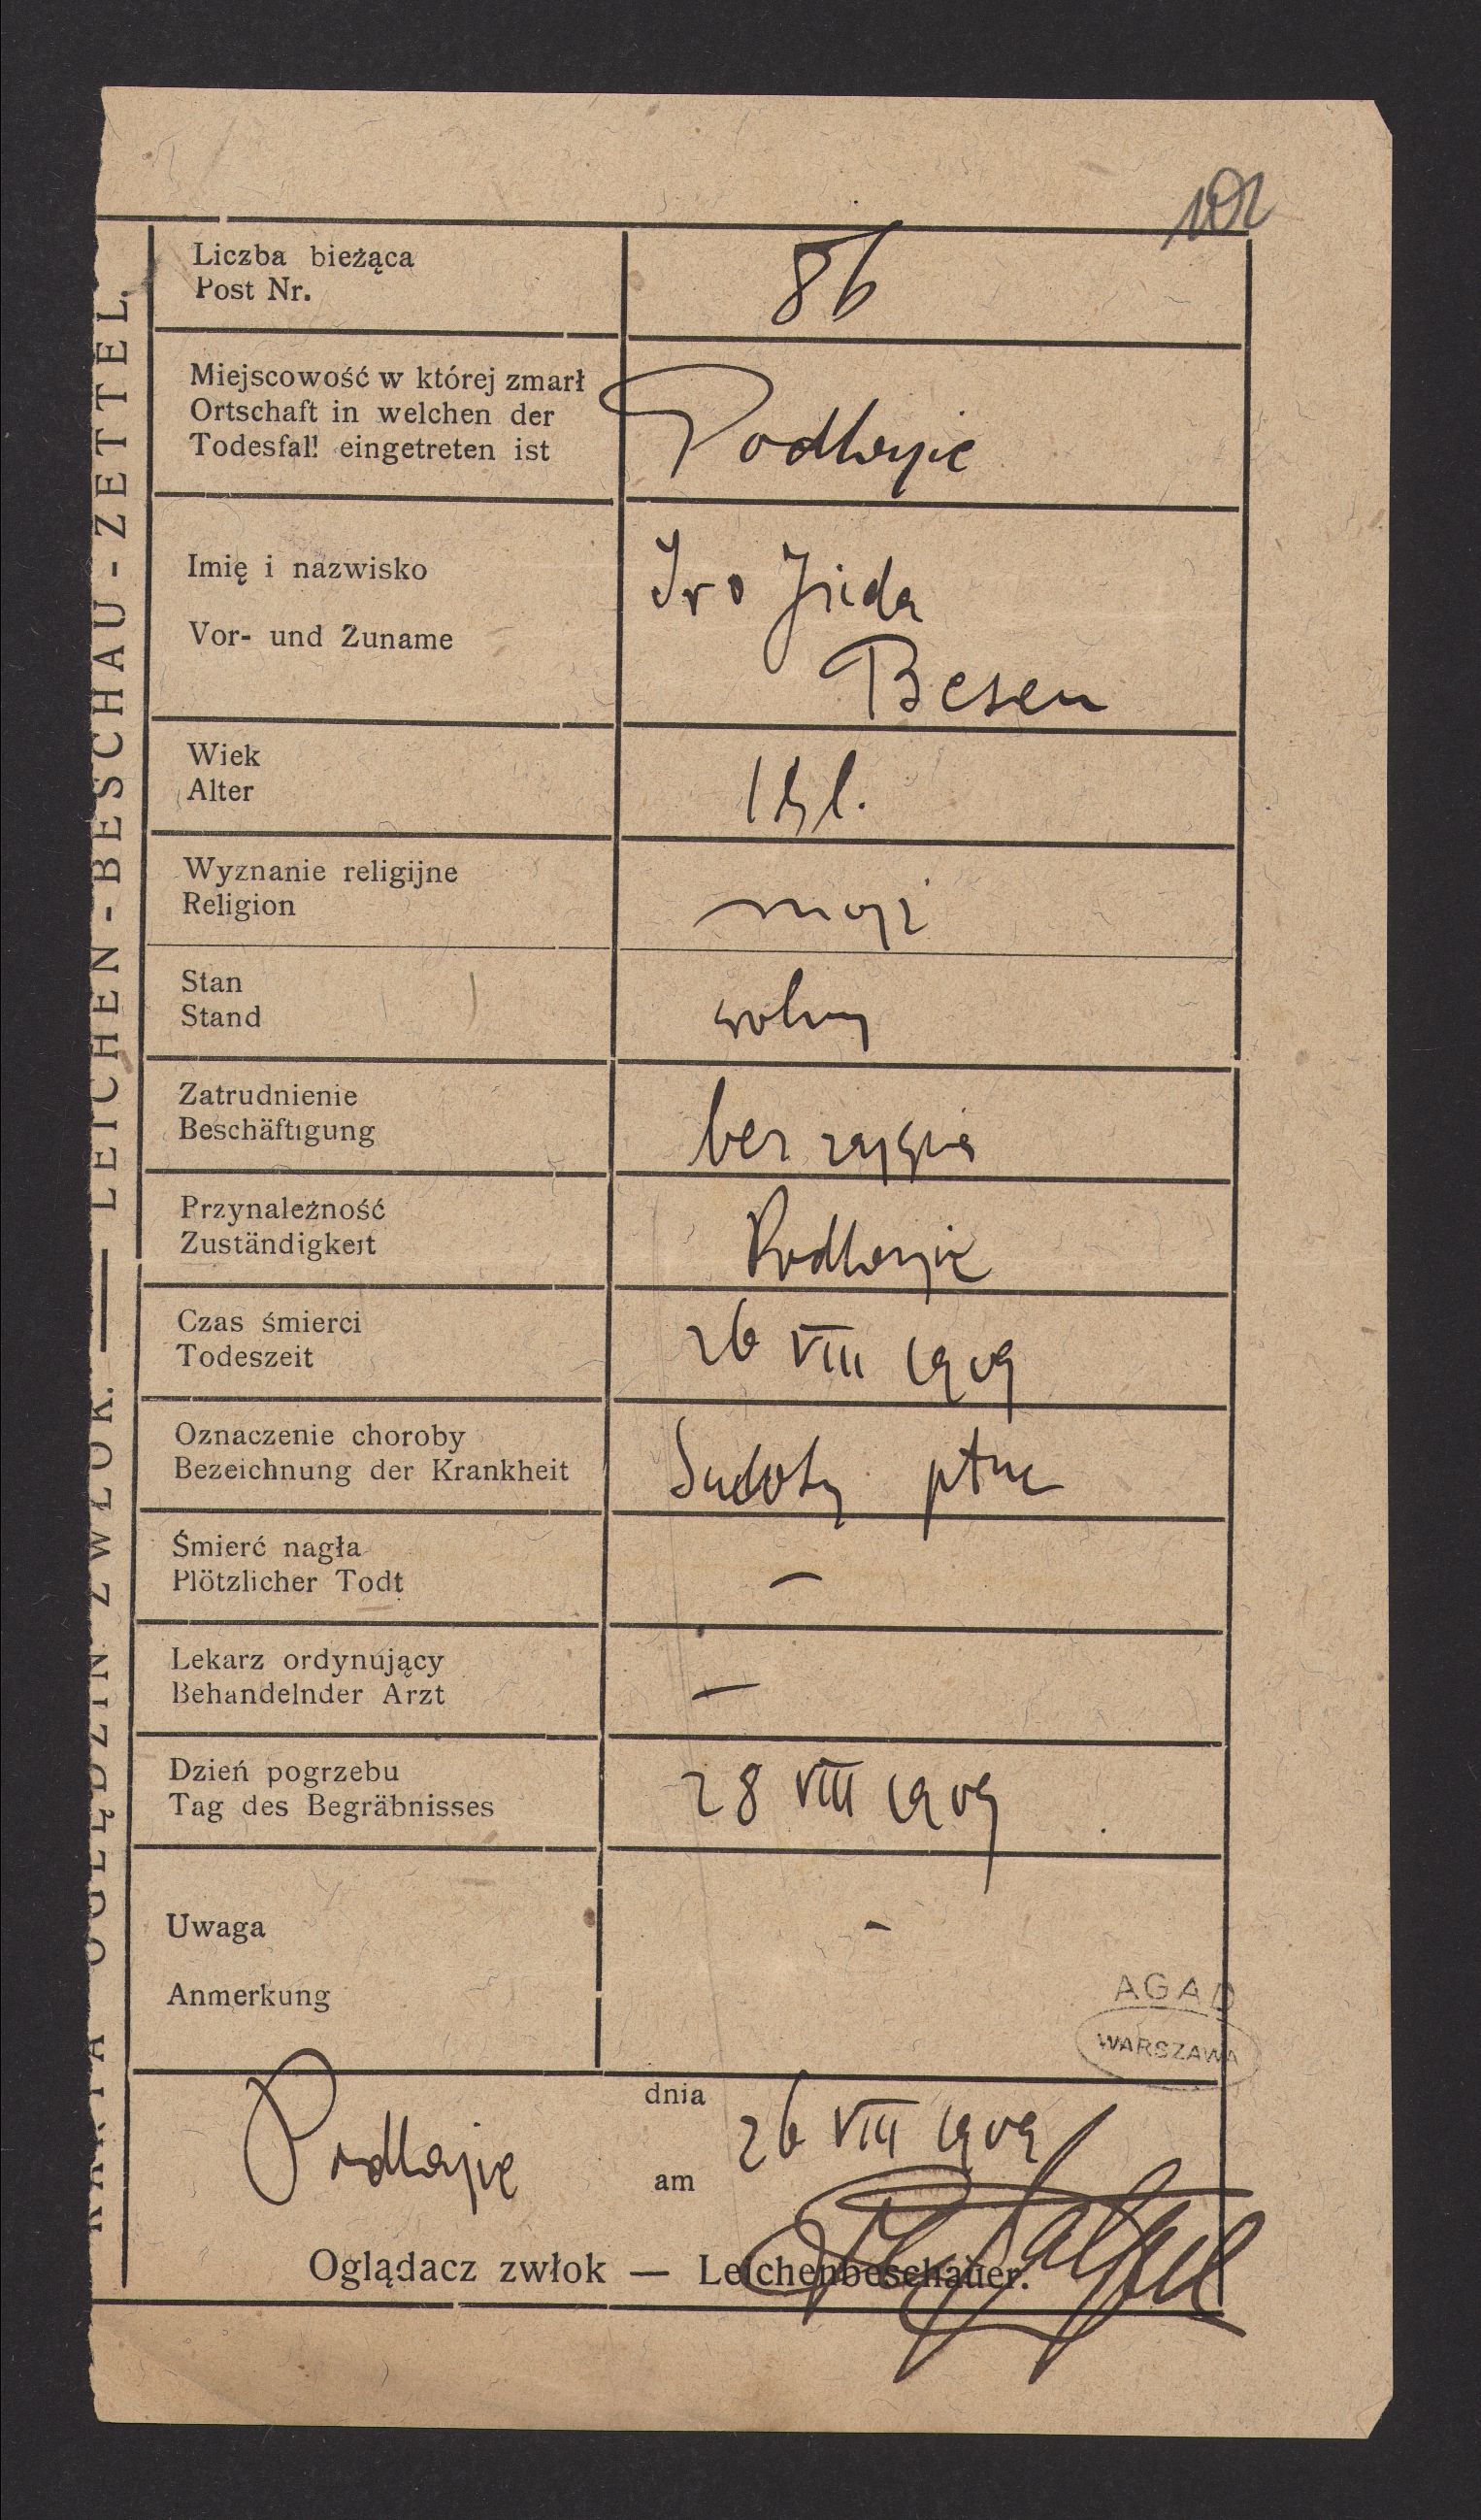 102
KARTA OGLĘDZIN ZWŁOK. — LEICHEN-BESCHAU-ZETTEL.
Liczba bieżąca
Post Nr.
86
Miejscowość w której zmarł
Ortschaft in welchen der
Todesfall eingetreten ist
Podhajce
Imię i nazwisko
Vor- und Zuname
Juda
Besen
Wiek
Alter
l.
Wyznanie religijne
Religion
mojż
Stan
Stand
wolny
Zatrudnienie
Beschäftigung
bez zajęcia
Przynależność
Zuständigkeit
Podhajce
Czas śmierci
Todeszeit
26 VIII 1909
Oznaczenie choroby
Bezeichnung der Krankheit
Suchoty płuc
Śmierć nagła
Plötzlicher Todt
—
Lekarz ordynujący
Behandelnder Arzt
—
Dzień pogrzebu
Tag des Begräbnisses
28 VIII 1909
Uwaga
Anmerkung
-
AGAD
WARSZAWA
Podhajce
dnia
am
26 VIII 1909
Oglądacz zwłok — Leichenbeschauer.